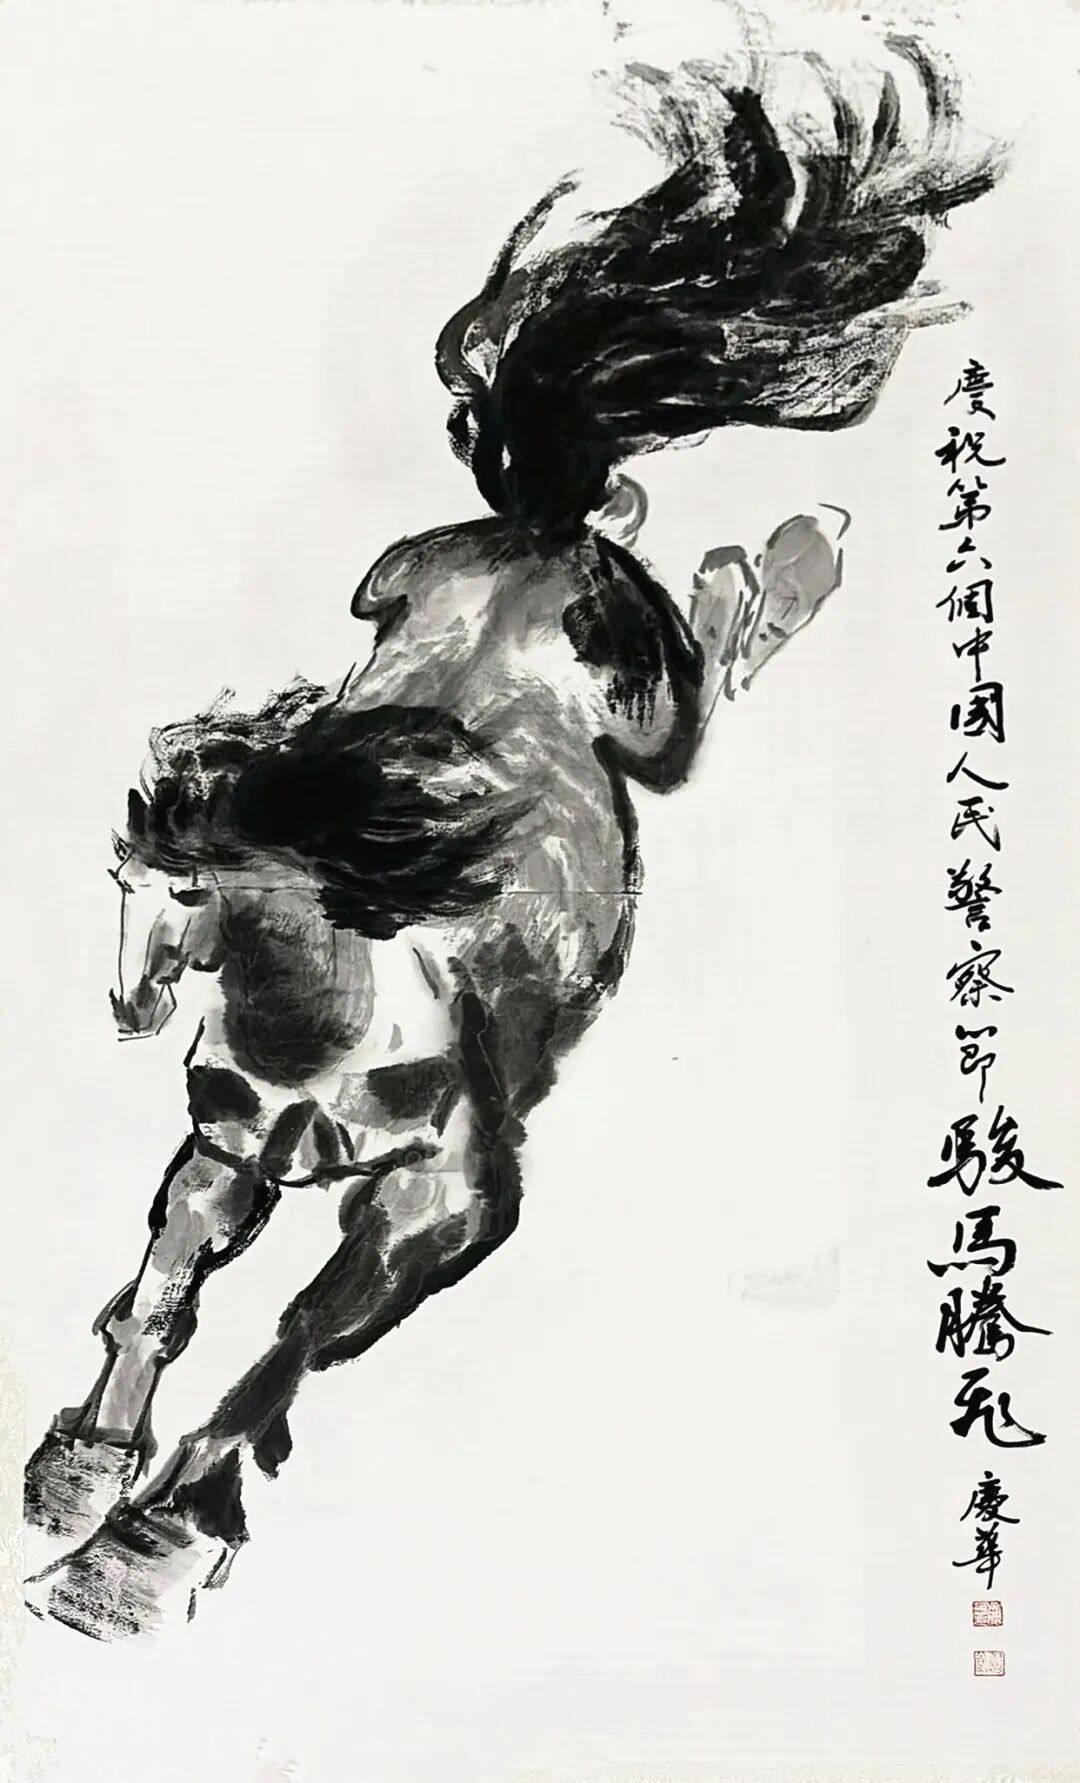 慶祝第六個中國人民警察節駿馬騰飛
慶華